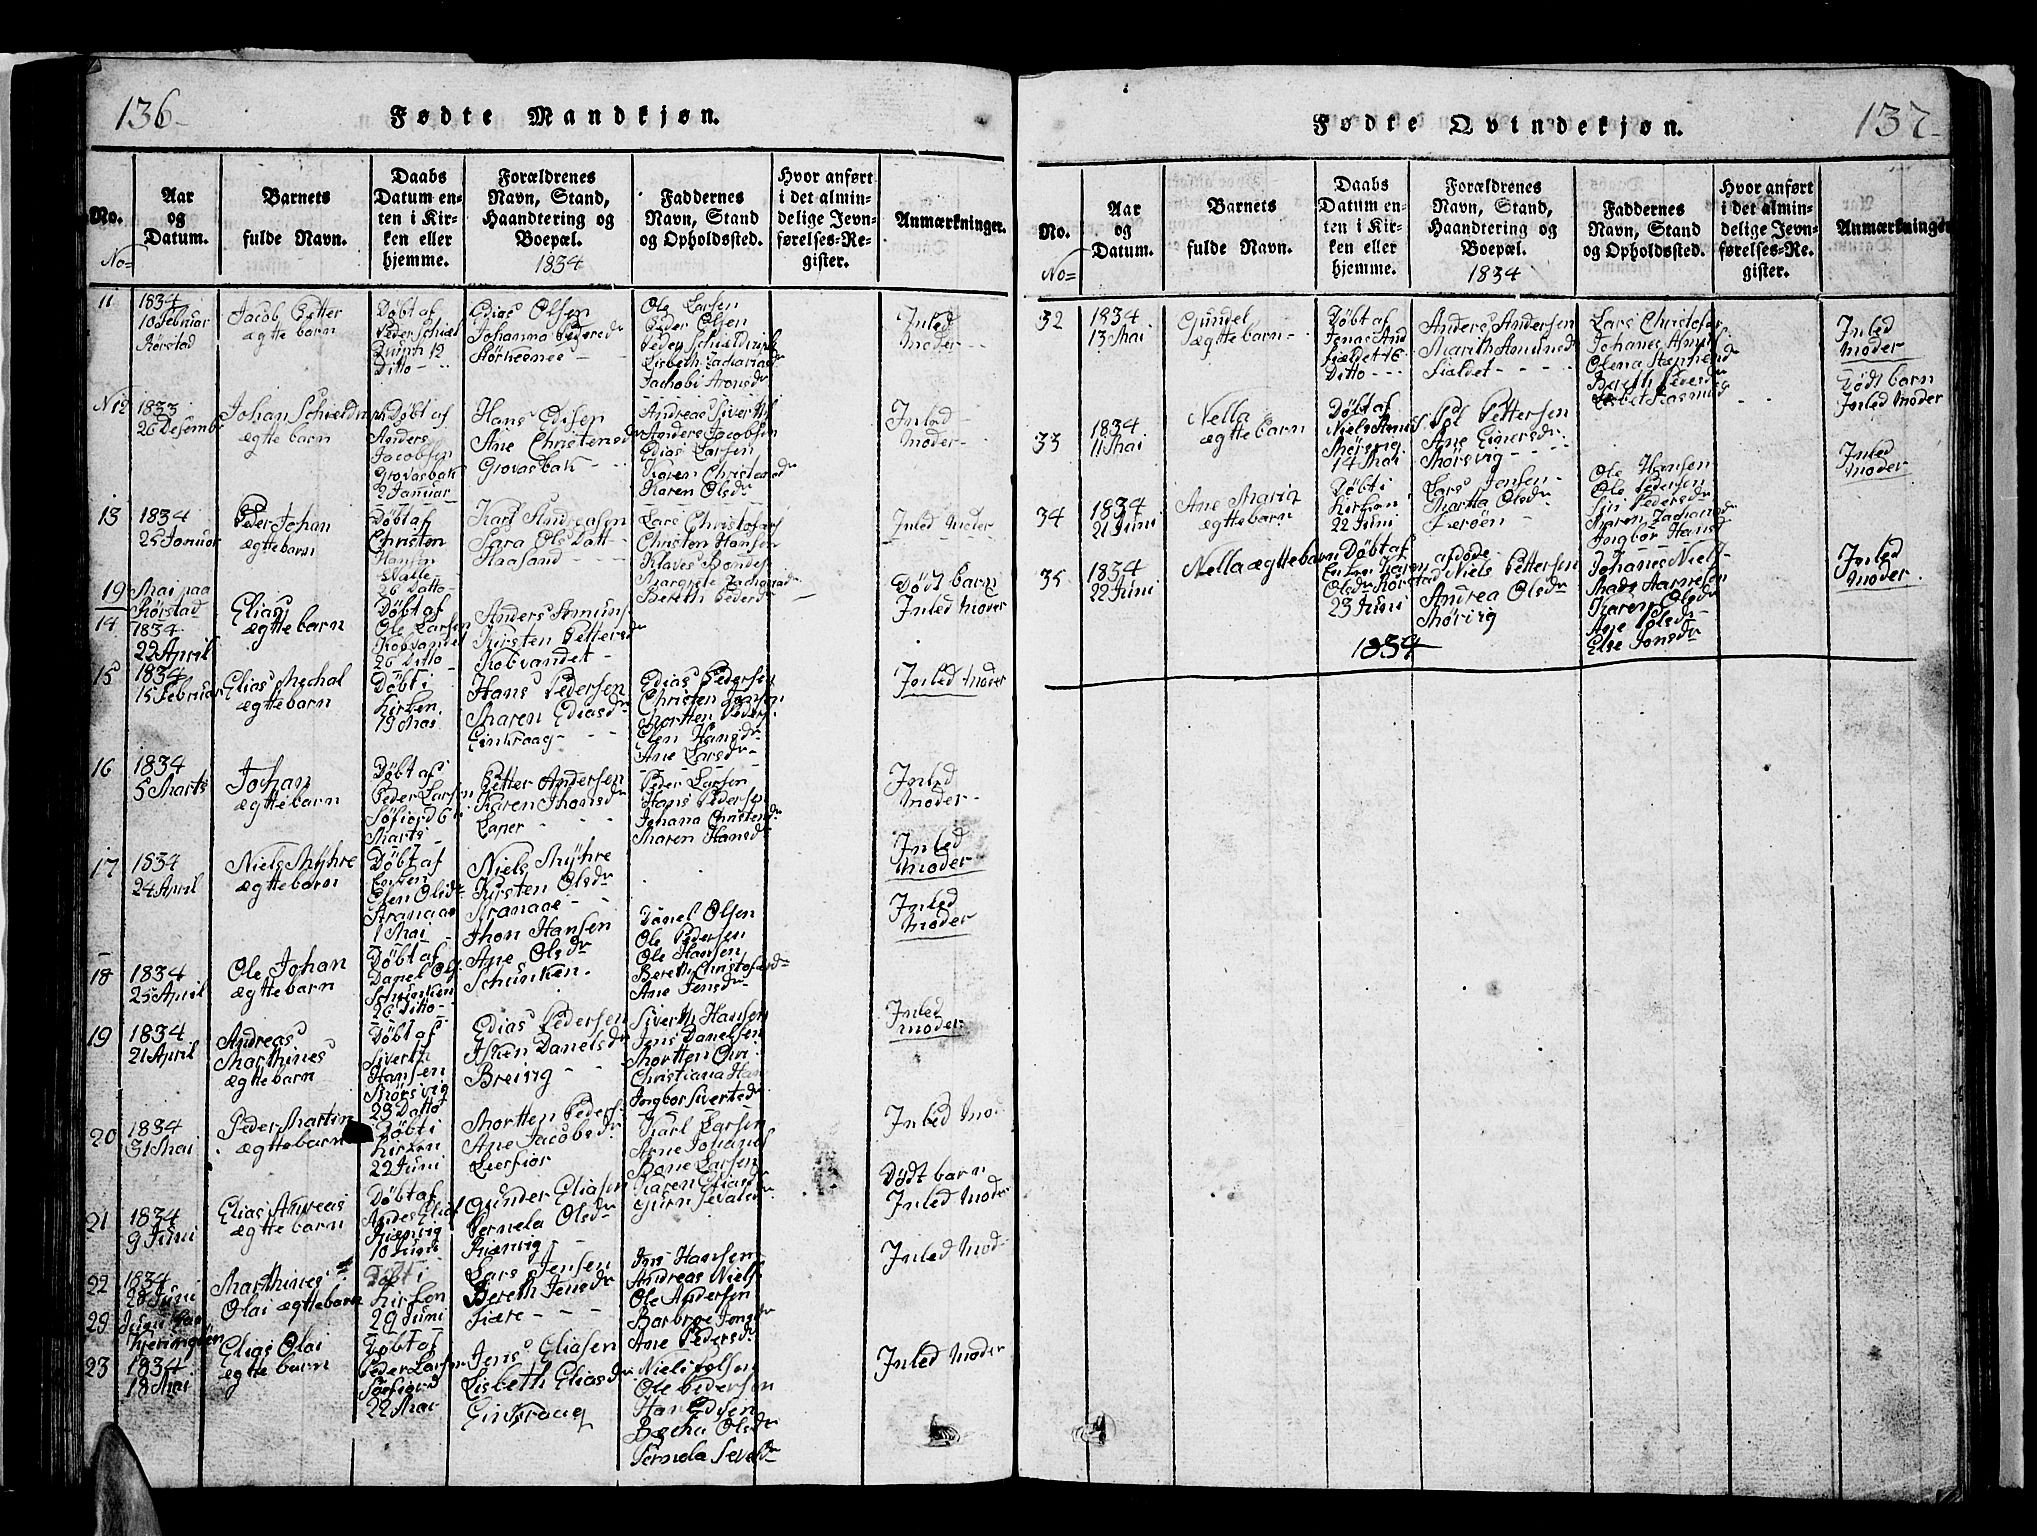 136
Fødte Mandkjøn.
No.
Aar
og
Datum.
Barnets
fulde Navn.
Daabs
Datum en-
ten i Kir-
ken eller
hjemme.
Forældrenes
Navn, Stand,
Haandtering og
Boepæl.
1834
Faddernes
Navn, Stand
og Opholdssted.
Hvor anført
i det almin-
delige Jevn-
førelses-Re-
gister.
Anmærkninger.
No
11
1834
10 Febuar
Rørstad
Jacob Petter
ægtte barn
Døbt af
Peder Schiel
12
Ditto
Edias Olsen
Johanna Pedersdr
Ole Larsen
Peder Olsen
Lisbeth Zachariasdr
Jachobi Aronsdr
Inled
moder
N12
1833
26 Desembr
Johan
ægtte barn
Døbt af
Anders
Jacobsen
Grovasbak
2 Januar
Hans Edisen
Ane Christensdr
Grovasbak
Andreas Siverths
Anders Jacobsen
Edias Larsen
Karen Christensdr
Karen Olsdr
Inled
moder
13
1834
25 Januar
Peder Johan
ægttebarn
Døbt af
Christen
Hansen
Valle
26 Datto
Karl Andreasen
Sara Ols Datt
Haasand
Lars Christofers
Christen Hansen
Klaves
Margrete Zachariasdr
Bereth Pedersdr
Inled Moder
19
Mai paa
Rørstad
14
1834
22 April
Elias
ægttebarn
Døbt af
Ole Larsen
Kobvandet
26 Ditto
Anders Amunds
Kirsten Pettersdr
Kobvandet
Dødt barn
Inled Moder
15
1834
15 Februar
Elias Mechal
ægttebarn
Døbt i
Kirken
19 Mai
Hans Pedersen
Maren Ediasdr
Einkraag
Edias Pedersen
Christen Jensen
Mortten Peders
Elen Hansdr
Ane Larsdr
Inled Moder
16
1834
5 Marts
Johan
ægttebarn
Døbt af
Peder Larsen
Søfiord 6
Marts
Petter Andersen
Karen Thomsdr
Laper
Peder Larsen
Hans Pedersen
Johana Christensdr
Maren Hansdr
Inled
moder
17
1834
24 April
Niels Myhre
ægttebarn
Døbt af
Enken
Elen Olsdr
Aranaae
1 Mai
Niels Myhre
Kirsten Olsdr
Aranaae
Inled
Moder
18
1834
25 April
Ole Johan
ægttebarn
Døbt af
Danel Ols
Schunken
26 Ditto
Thon Hansen
Ane Olsdr
Schunken
Danel Olsen
Ole Pedersen
Ole Hansen
Bereth Christofersdr
Ane Jensdr
Inled
Moder
19
1834
21 April
Andreas
Marthines
ægttebarn
Døbt af
Siverth
Hansen
Mørsvig
23 Datto
Edias Pedersen
Danelsdr
Breivig
Siverth Hansen
Jens Danelsen
Mortten
Christiana Han
Ingbor Sivertsdr
Inled
moder
20
1834
31 Mai
Peder Martin
ægttebarn
Døbt i
Kirken
22 Juni
Mortten Peders
Ane Jacobsdr
Leerfior
Karl Larsen
Arne Johanes
Larsen
Karen Eliasdr
Inled Mod
21
1834
9 Juni
Elias Andreas
ægtte barn
Døbt af
Andes Elias
10 Juni
Gunder Eliasen
Pernela Olsdr
Dødt barn
Inled Moder
22
1834
28 Juni
Marthines
Olai ægttebarn
Døbt i
Kirken
29 Juni
Lars Jensen
Bereth Jensdr
Jens Hansen
Andreas Niels
Ole Andersen
Barbroe Jonsdr
Ane Pedersdr
Inled Mod
29
Juni paa
Kjeringøen
23
1834
18 Mai
Elias Olai
ægtte barn
Døbt af
Peder Larsen
Sørfiord
22 Mai
Jens Eliasen
Lisbeth Eliasdr
Einkraag
Niels Olsen
Ole Pedersen
Hans Edisen
Olsdr
Pernela
Inled Moder
137
Fødte Qvindekjøn.
No.
Aar
og
Datum.
Barnets
fulde Navn.
Daabs
Datum en-
ten i Kir-
ken eller
hjemme.
Forældrenes
Navn, Stand,
Haandtering og
Boepæl.
1834
Faddernes
Navn, Stand
og Opholdssted.
Hvor anført
i det almin-
delige Jevn-
førelses-Re-
gister.
Anmærkninger
No
32
1834
13 Mai
Gundel
ægttebarn
Døbt af
Jonas And
Fialdet 16
Ditto
Anders Andersen
Marith Amundsdr
Fialdet
Lars Christofer
Johanes
Olena
Bereth Pedersdr
Lisbet Rasmusd
Inled
Moder
33
1834
11 Mai
Nella
ægttebarn
Døbt af
Niels
Mørsvig
14 Mai
Pol Pettersen
Ane Einersdr
Mørsvig
Dødt barn
Inled Moder
34
1834
21 Juni
Ane Maria
ægttebarn
Døbt i
Kirken
22 Juni
Lars Jensen
Martta Olsdr
Ole Hansen
Ole Pedersen
Siri Pedersdr
Maren Zachariasdr
Ingbor Hansd
Inled
Moder
35
1834
22 Juni
Nella ægttebarn
Døbt af
Enken Karen
Olsdr Rørstad
23 Juni
afdøde
Niels Pettersen
Andrea Olsdr
Mørsvig
Johanes Niels
Mads Aarnesen
Karen Olsdr
Ane Polsdr
Else Jonsdr
Inled
Moder
1834